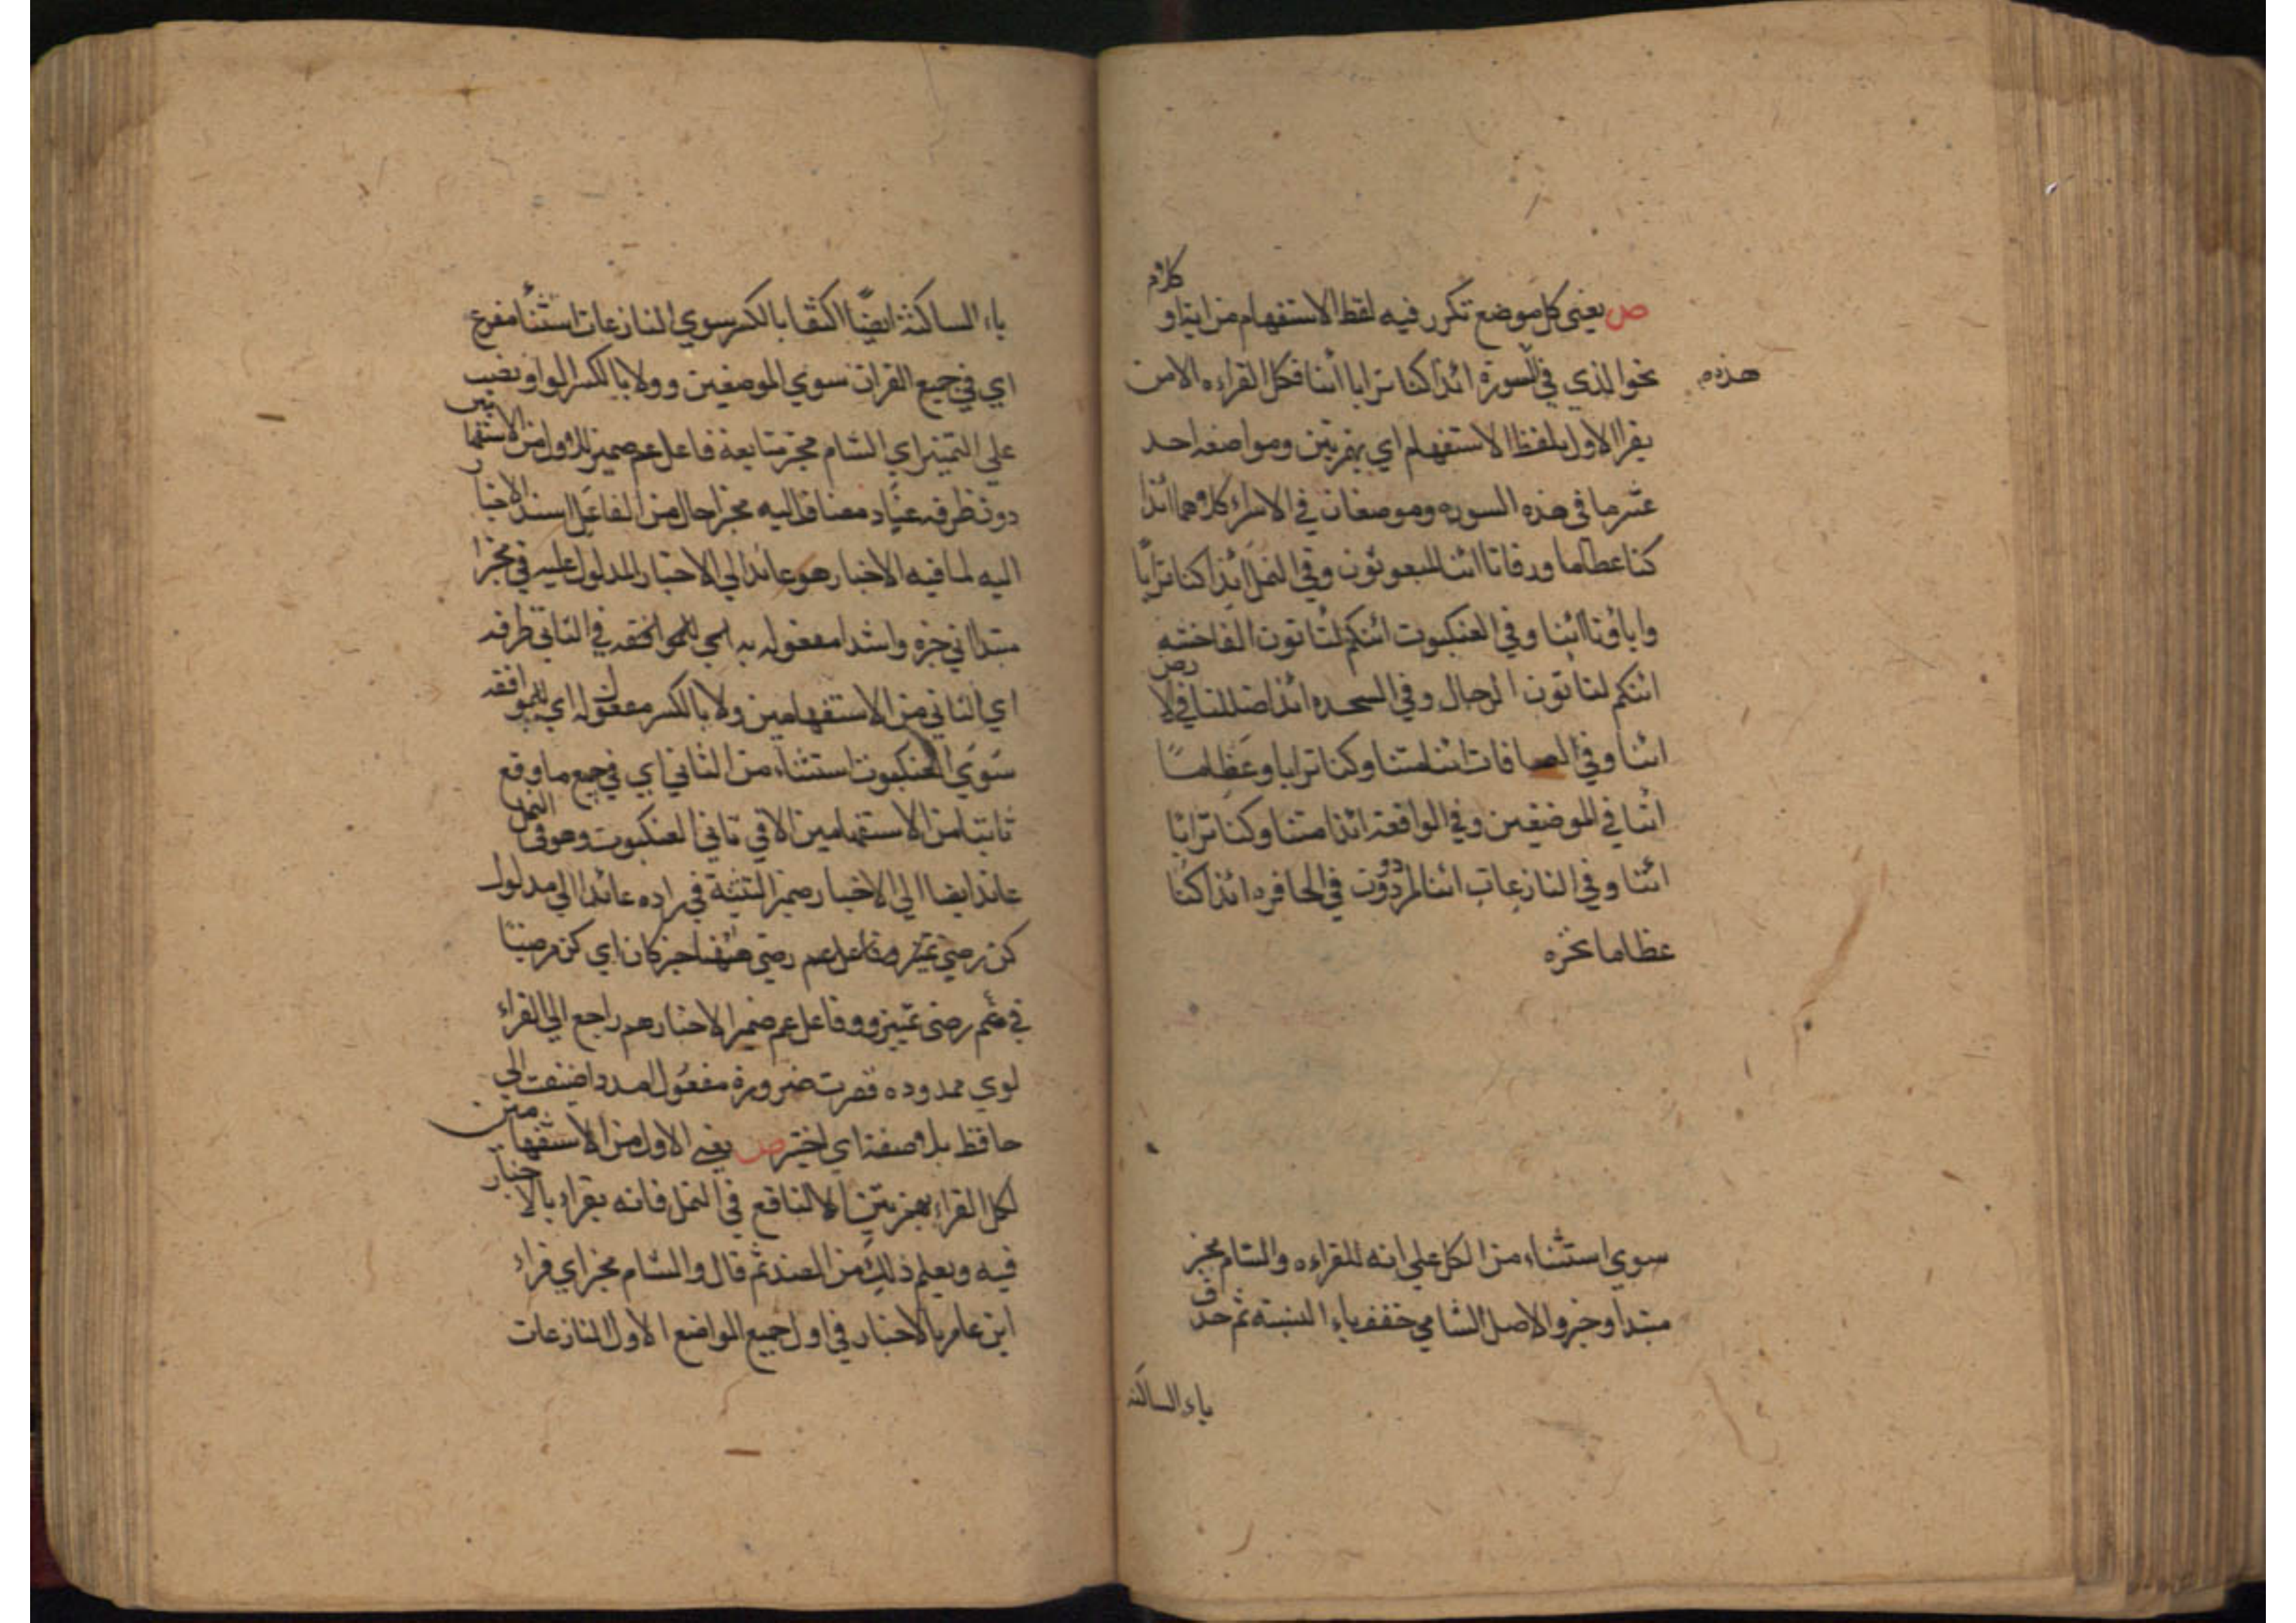 ص يعني كل موضع تكرر فيه لفظ الاستفهام من اية او كلام
نحو الذي في السورة ائذا كنا ترابا أئنا فكل القراءه الامن
هذه م
يقرا الاول بلفظ الاستفهام اي بهمزتين ومواضعه احد
عشر ما في هذه السوره وموضعان في الاسراء كلاهما ائذا
كنا عظاما ورفاتا ائنا لمبعوثون وفي النمل ائذا كنا ترابًا
وابآؤنا ائنا وفي العنكبوت ائنكم لتاتون الفاحشه
ائنكم لتاتون الرجال وفي السجده ائذا ضللنا في الارض
ائنا وفي الصافات ائذا متنا وكنا ترابا وعظامًا
ائنا في الموضعين وفي الواقعة ائذا متنا وكنا ترابًا
ائنا وفي النازعات ائنا لمردودون في الحافره ائذا كنا
عظاما نخره
سوي استثناء من الكل علي انه للقراءه والشام مخبر
مبتدا وخبر والاصل الشامي خفف ياء النسبة ثم حذف
ياء الساكنه
ياء الساكنة ايضًا اكتفا بالكسر سوي النازعات استثنأ مفرع
اي في جميع القران سوي الموضعين وولا بالكسر الواو نصب
علي التميز اي الشام مخبر متابعة فاعل عم ضمير للاول من الاستفهامين
دون ظرفه عناد مضاف اليه مخبرا حال من الفاعل اسند الاخبار
اليه لما فيه الاخبار هو عائد الي الاخبار المدلول عليه في مخبرا
مبتدا ني خبره واشدا مفعوله به اي للموافقه في الثاني ظرفه
اي الثاني من الاستفهامين ولا بالكسر مفعوله اي للموافقه
سوي العنكبوت استثناء من الثاني اي في جميع ما وقع
ثانيا من الاستفهامين الا في ثاني العنكبوت وهو في النمل
عائد ايضا الي الاخبار ضمير التثنية في راده عائدا الي مدلول
كن رضي تميز وفاعل عم رضي خبر كان اي كن مرضيًا
في عم رضي تمييز ووفاعل عم ضمير الاخبار هم راجع الي القراء
لوي ممدوده قصرت ضرورة مفعول امدد اضيفت الي
حافظ بلا صفة اي اختبر ص يعني الاول من الاستفهامين
لكل القراء بهمزتين الا لنافع في النمل فانه يقراء بالاخبار
فيه ويعلم ذلك من الضد ثم قال والشام مخبر اي قراء
ابن عامر بالاخبار في اول جميع المواضع الاول النازعات